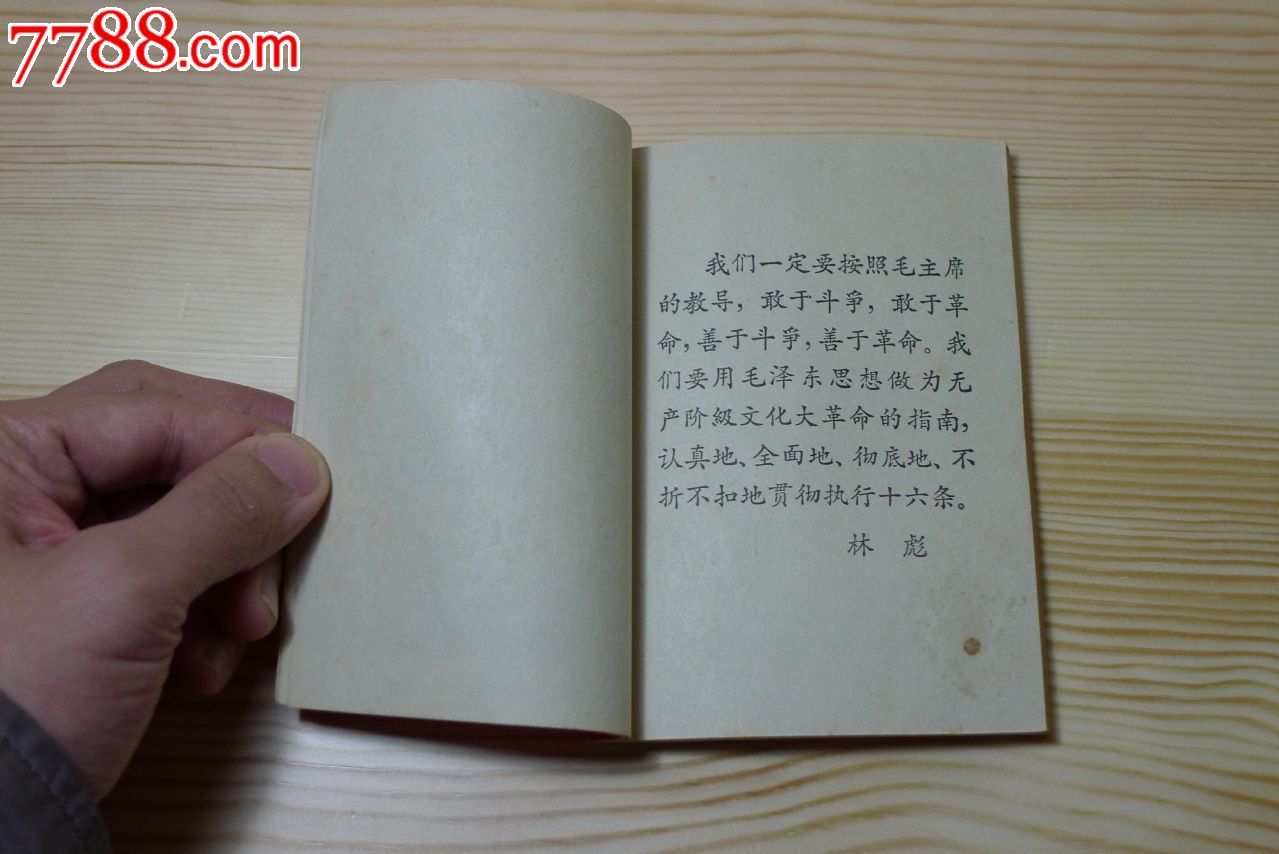 7788.com
我们一定要按照毛主席
的教导，敢于斗爭，敢于革
命，善于斗爭，善于革命。我
们要用毛泽东思想做为无
产阶級文化大革命的指南，
认真地、全面地、彻底地、不
折不扣地贯彻执行十六条。
林 彪